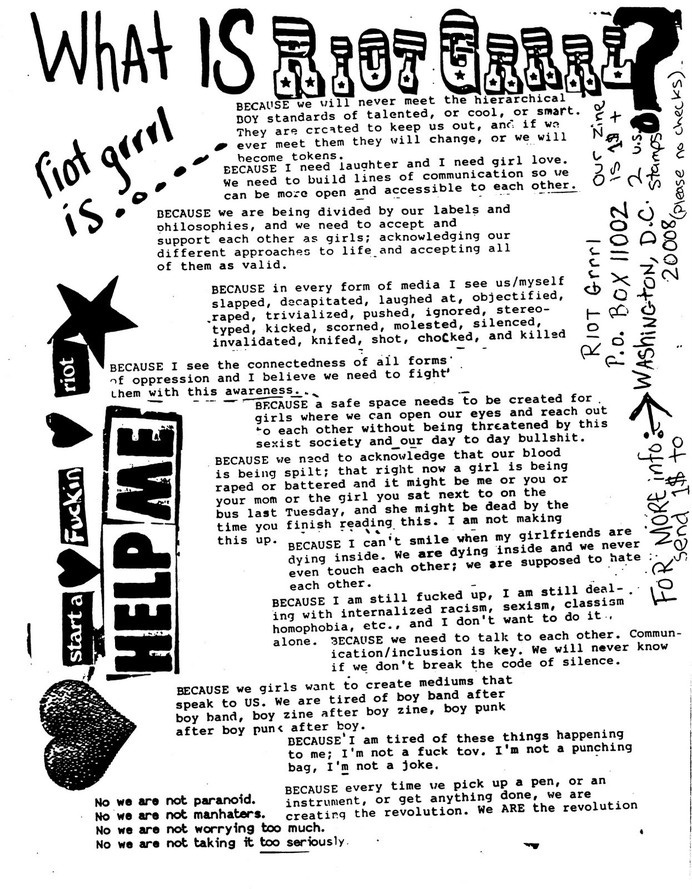 WHAT IS RIOT GRRRL?
riot grrrl
is........
BECAUSE we will never meet the hierarchical
BOY standards of talented, or cool, or smart.
They are created to keep us out, and if we
ever meet them they will change, or we will
become tokens.
BECAUSE I need laughter and I need girl love.
We need to build lines of communication so we
can be more open and accessible to each other.
BECAUSE we are being divided by our labels and
philosophies, and we need to accept and
support each other as girls; acknowledging our
different approaches to life and accepting all
of them as valid.
BECAUSE in every form of media I see us/myself
slapped, decapitated, laughed at, objectified,
raped, trivialized, pushed, ignored, stereo-
typed, kicked, scorned, molested, silenced,
invalidated, knifed, shot, chocked, and killed
BECAUSE I see the connectedness of all forms
of oppression and I believe we need to fight
them with this awareness...
BECAUSE a safe space needs to be created for
girls where we can open our eyes and reach out
to each other without being threatened by this
sexist society and our day to day bullshit.
BECAUSE we need to acknowledge that our blood
is being spilt; that right now a girl is being
raped or battered and it might be me or you or
your mom or the girl you sat next to on the
bus last Tuesday, and she might be dead by the
time you finish reading this. I am not making
this up.
BECAUSE I can't smile when my girlfriends are
dying inside. We are dying inside and we never
even touch each other; we are supposed to hate
each other.
BECAUSE I am still fucked up, I am still deal-
ing with internalized racism, sexism, classism
homophobia, etc., and I don't want to do it
alone.
BECAUSE we need to talk to each other. Commun-
ication/inclusion is key. We will never know
if we don't break the code of silence.
BECAUSE we girls want to create mediums that
speak to US. We are tired of boy band after
boy band, boy zine after boy zine, boy punk
after boy punk after boy.
BECAUSE I am tired of these things happening
to me; I'm not a fuck toy. I'm not a punching
bag, I'm not a joke.
BECAUSE every time we pick up a pen, or an
instrument, or get anything done, we are
creating the revolution. We ARE the revolution
No we are not paranoid.
No we are not manhaters.
No we are not worrying too much.
No we are not taking it too seriously.
start a
Fuckin
riot
HELP ME
FOR MORE info:
send 1$ to
RIOT Grrrl
P.O. BOX 11002
WASHINGTON, D.C.
20008
OUR Zine
is 1$ +
2 U.S.
Stamps
(please no checks).